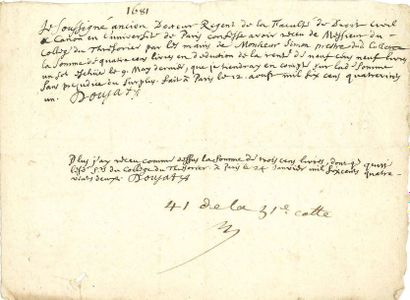 1681
Je soussigné ancien Docteur Regent de la Faculté de Droit Civil
& Canon en l'université de Paris confesse avoir receu de Messieurs du
College du Thresorier par les mains de Monsieur Simon prestre dud. College
la somme de quatre cens livres en deduction de la rente de neuf cens neuf livres
un sol escheüe le 9. May dernier, que je tiendray en compte sur lad. somme
sans prejudice du surplus. fait à Paris le 12 aoust mil six cens quatrevins
un. Doujat
Plus j'ay receu comme dessus la somme de trois cens livres, dont je quitte
du College du Thresorier à Paris le 24 Janvier mil six cens quatre-
vins deux. Doujat
41 de la 31e cotte